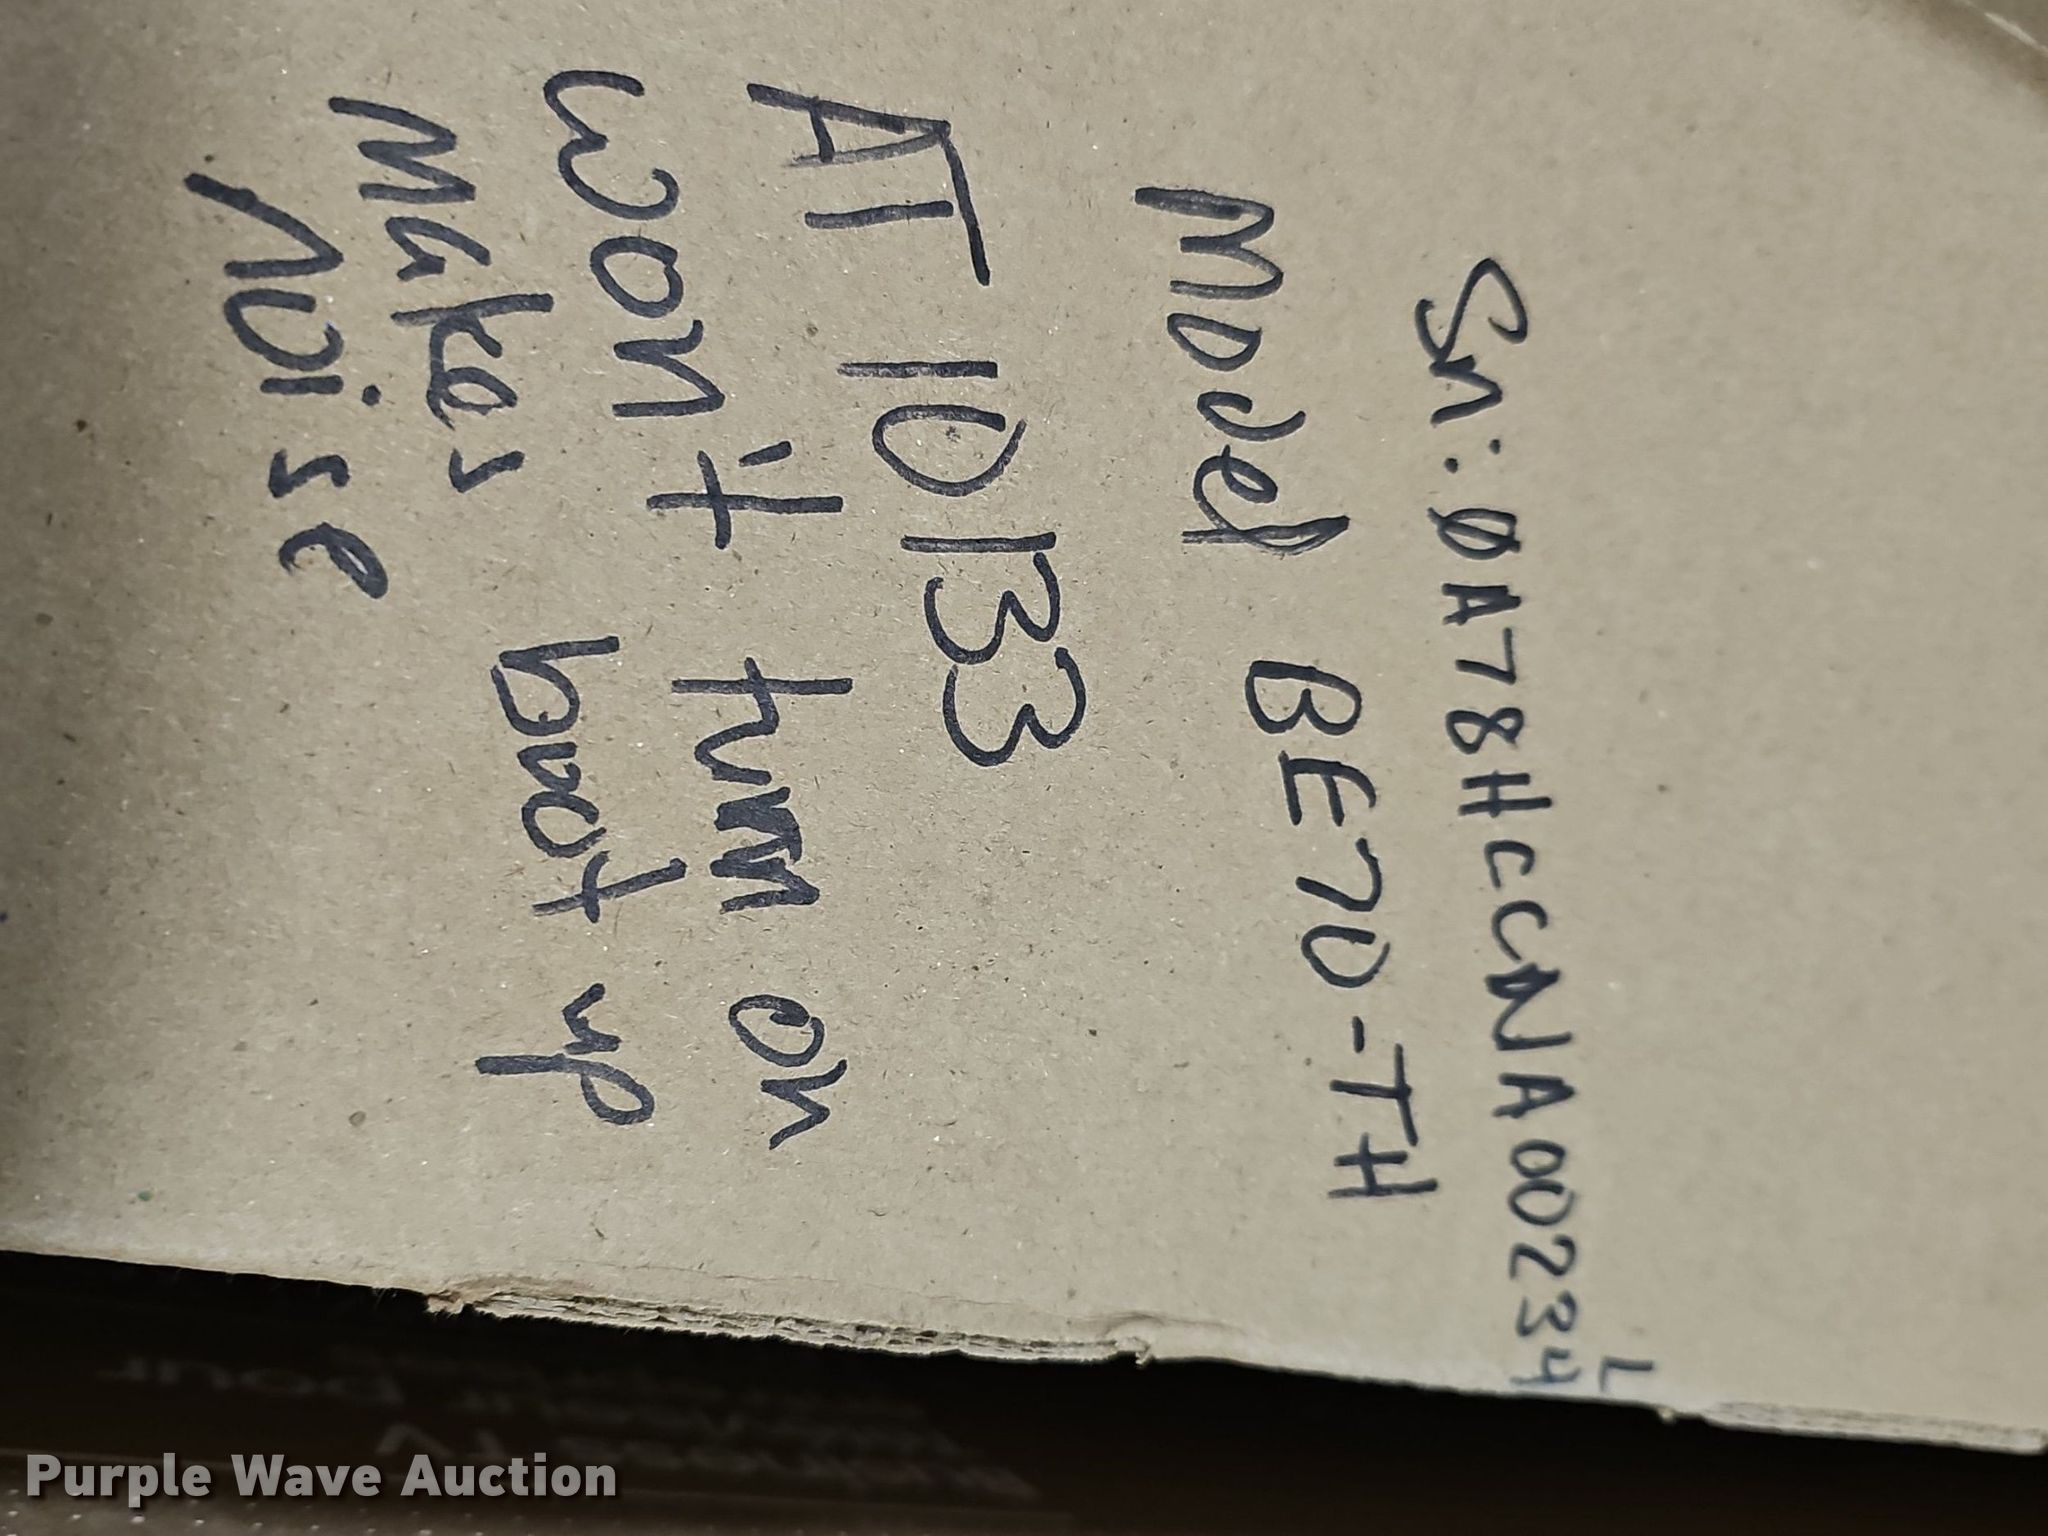 Sn: 0A78HCCNA00234L
Model BE70-TH
AT 10133
won't turn on
Makes boot up
Noise
Purple Wave Auction